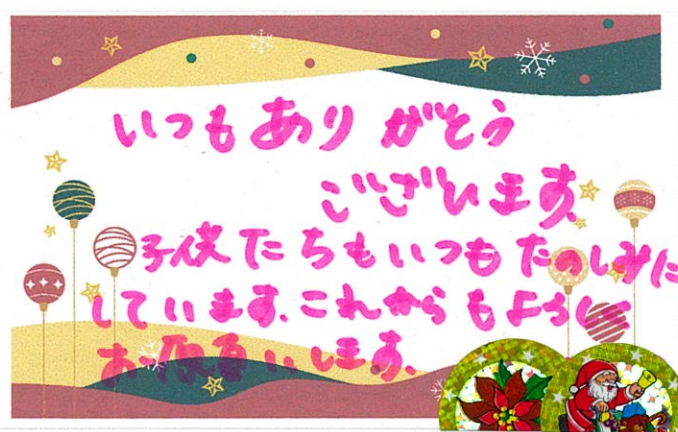 いつもありがとう
ございます。
子供たちもいつもたのしみに
しています。これからもよろしく
お願いします。